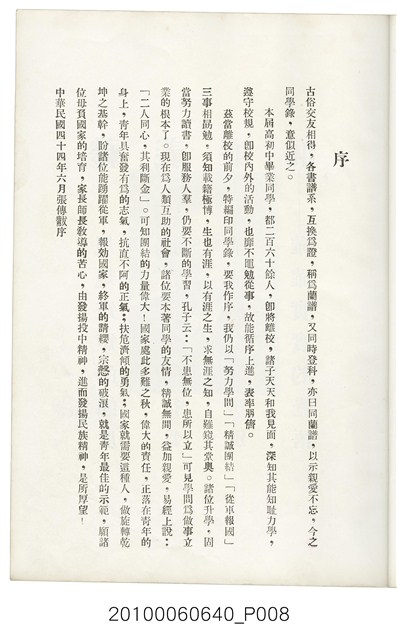 序
古俗交友相得，各書譜系，互換爲證，稱爲蘭譜，又同時登科，亦曰同蘭譜，以示親愛不忘，今之
同學錄，意似近之。
本屆高初中畢業同學，都二百六十餘人，卽將離校，諸子天天和我見面，深知其能知耻力學，
遵守校規，卽校內外的活動，也靡不黽勉從事，故能循序上進，表率儕儔。
茲當離校的前夕，特編印同學錄，要我作序，我仍以「努力學問」「精誠團結」「從軍報國」
三事相勗勉，須知載籍極博，生也有涯，以有涯之生，求無涯之知，自難窺其堂奧。諸位升學，固
當努力讀書，卽服務人羣，仍要不斷的學習，孔子云：「不患無位，患所以立」可見學問爲做事立
業的根本了。現在爲人類互助的社會，諸位要本著同學的友情，精誠無間，益加親愛，易經上說：
「二人同心，其利斷金」。可知團結的力量偉大！國家處此多難之秋，偉大的責任，正落在靑年的
身上，靑年具奮發有爲的志氣，抗直不阿的正氣；扶危濟傾的勇氣；國家就需要這種人，做旋轉乾
坤之基幹，盼諸位能踴躍從軍，報効國家，終軍的請纓，宗慤的破浪，就是靑年最佳的示範，願諸
位毋負國家的培育，家長師長敎導的苦心，由發揚投中精神，進而發揚民族精神，是所厚望！
中華民國四十四年六月張傳序
20100060640_P008